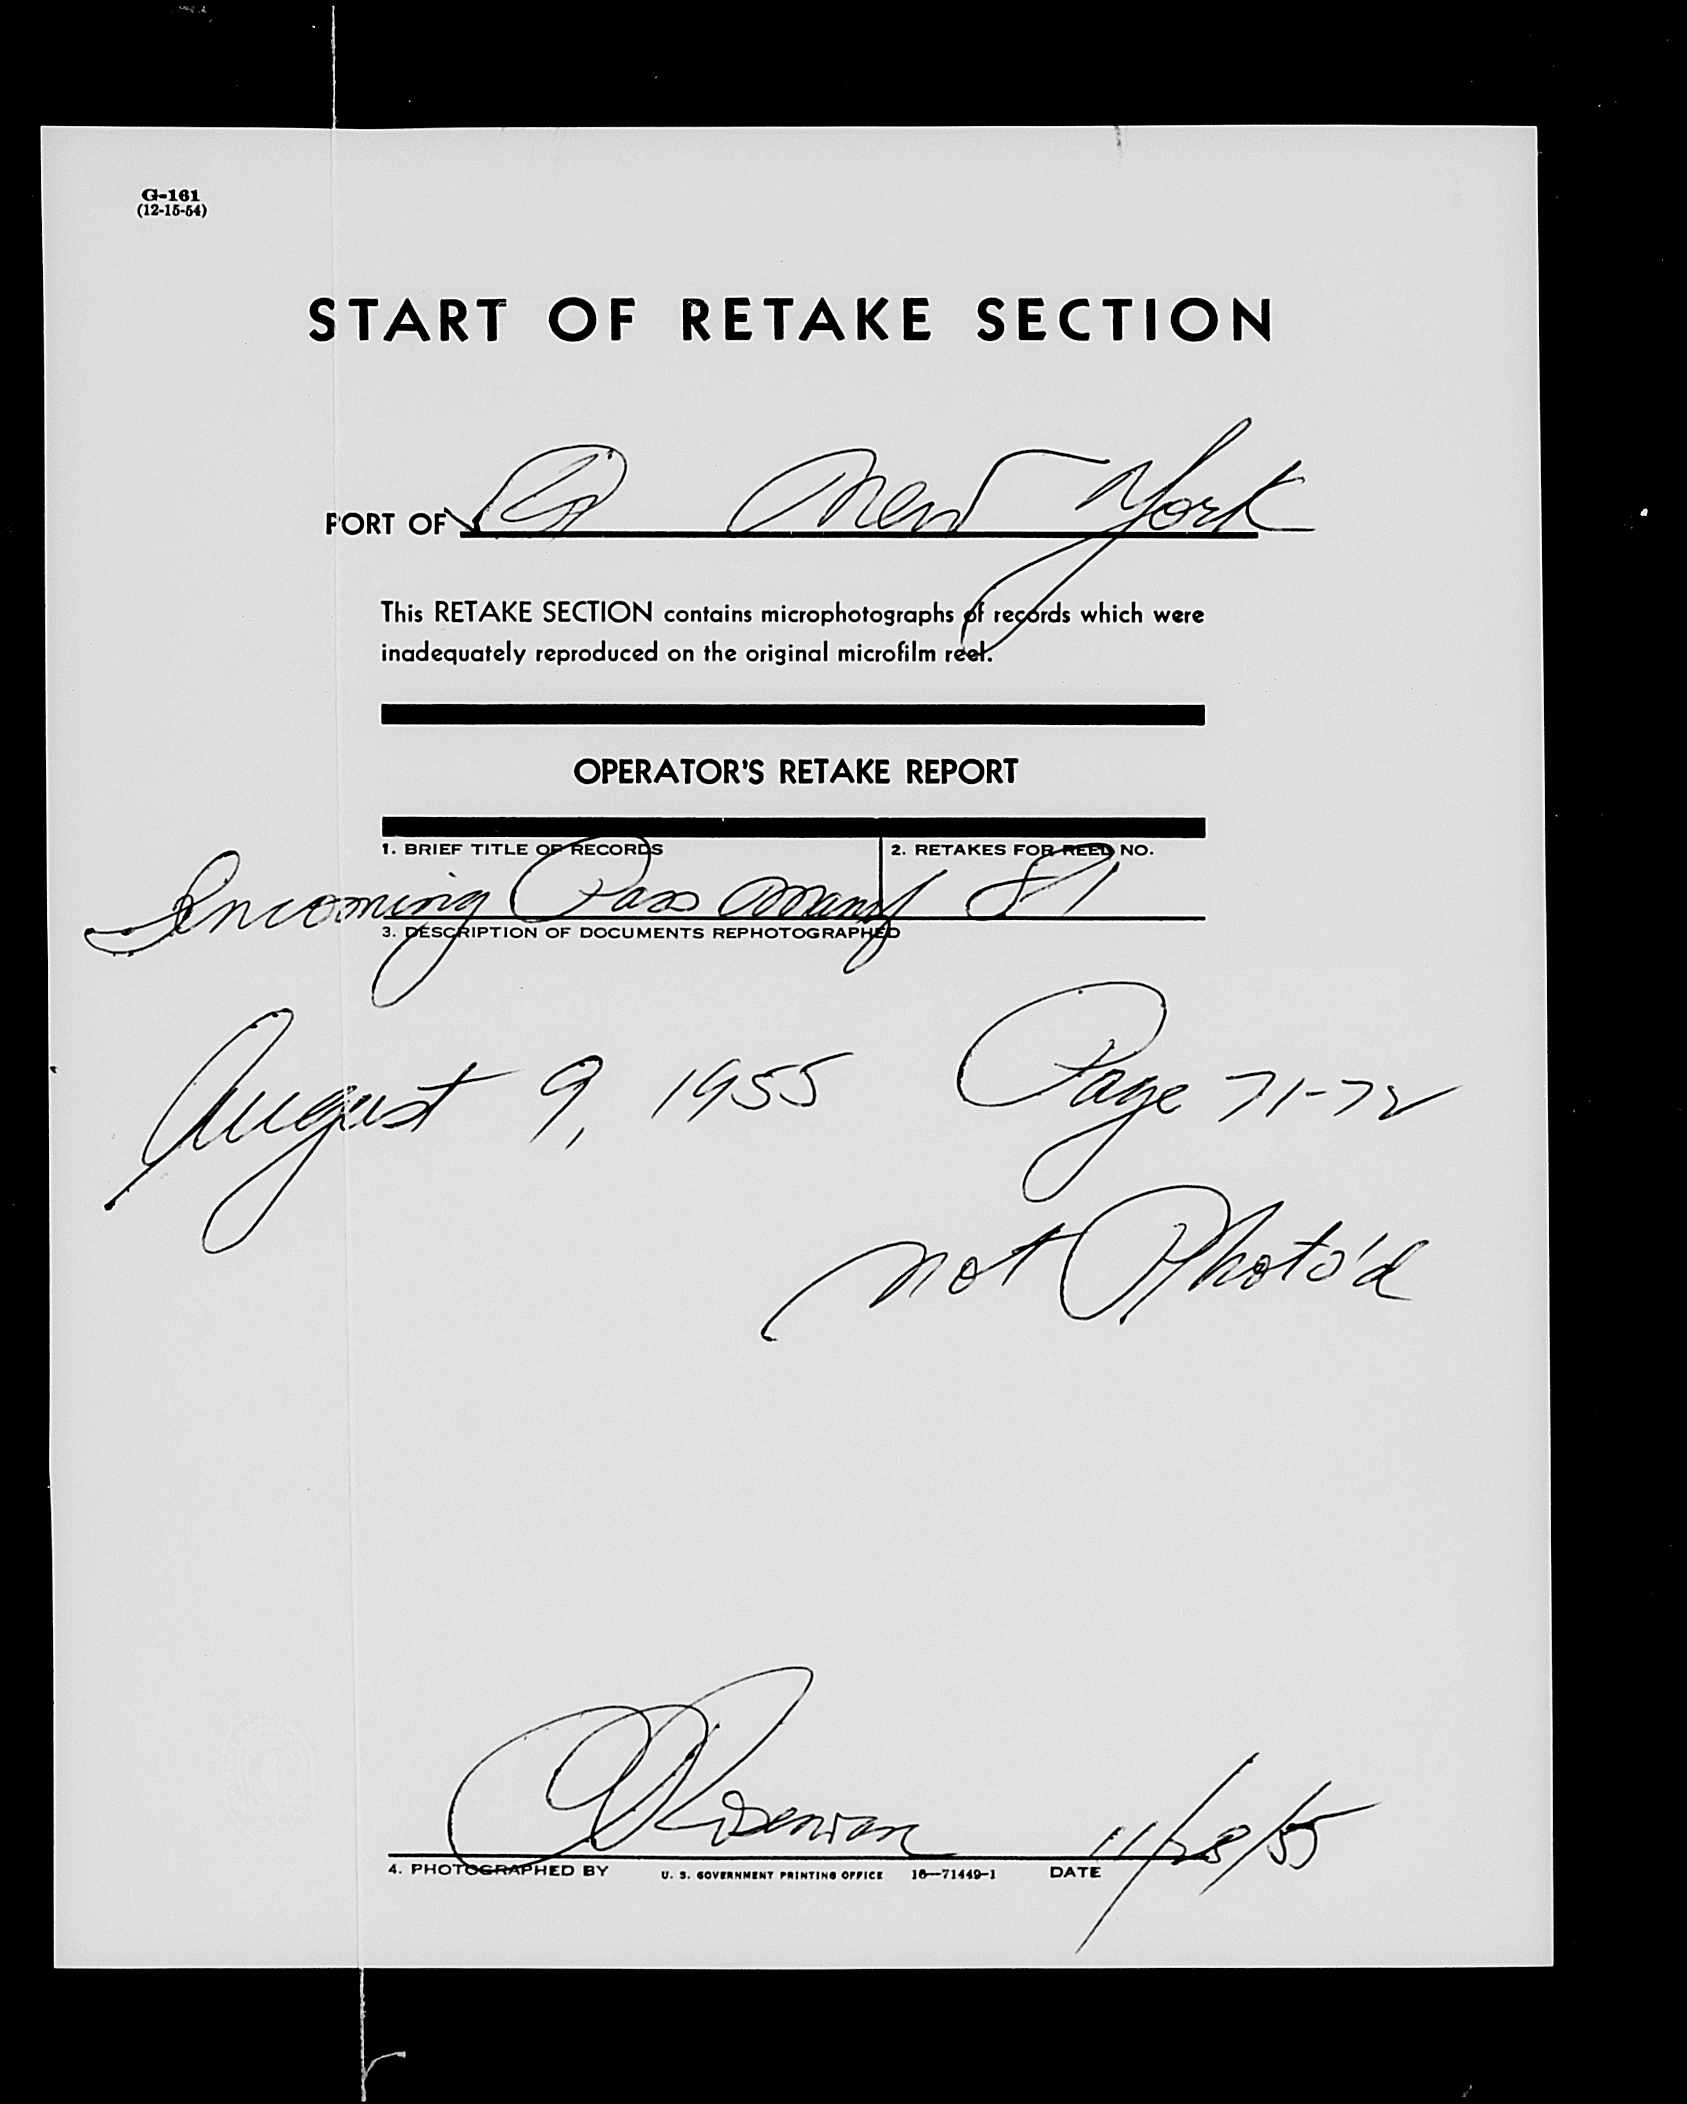 G-161
(12-15-54)
START OF RETAKE SECTION
PORT OF New York
This RETAKE SECTION contains microphotographs of records which were
inadequately reproduced on the original microfilm reel.
OPERATOR'S RETAKE REPORT
1. BRIEF TITLE OF RECORDS 2. RETAKES FOR REEL NO.
Incoming Pass Manif 81
3. DESCRIPTION OF DOCUMENTS REPHOTOGRAPHED
August 9, 1955 Page 71-72
not Photo'd
11/28/55
4. PHOTOGRAPHED BY U. S. GOVERNMENT PRINTING OFFICE 16—71449-1 DATE